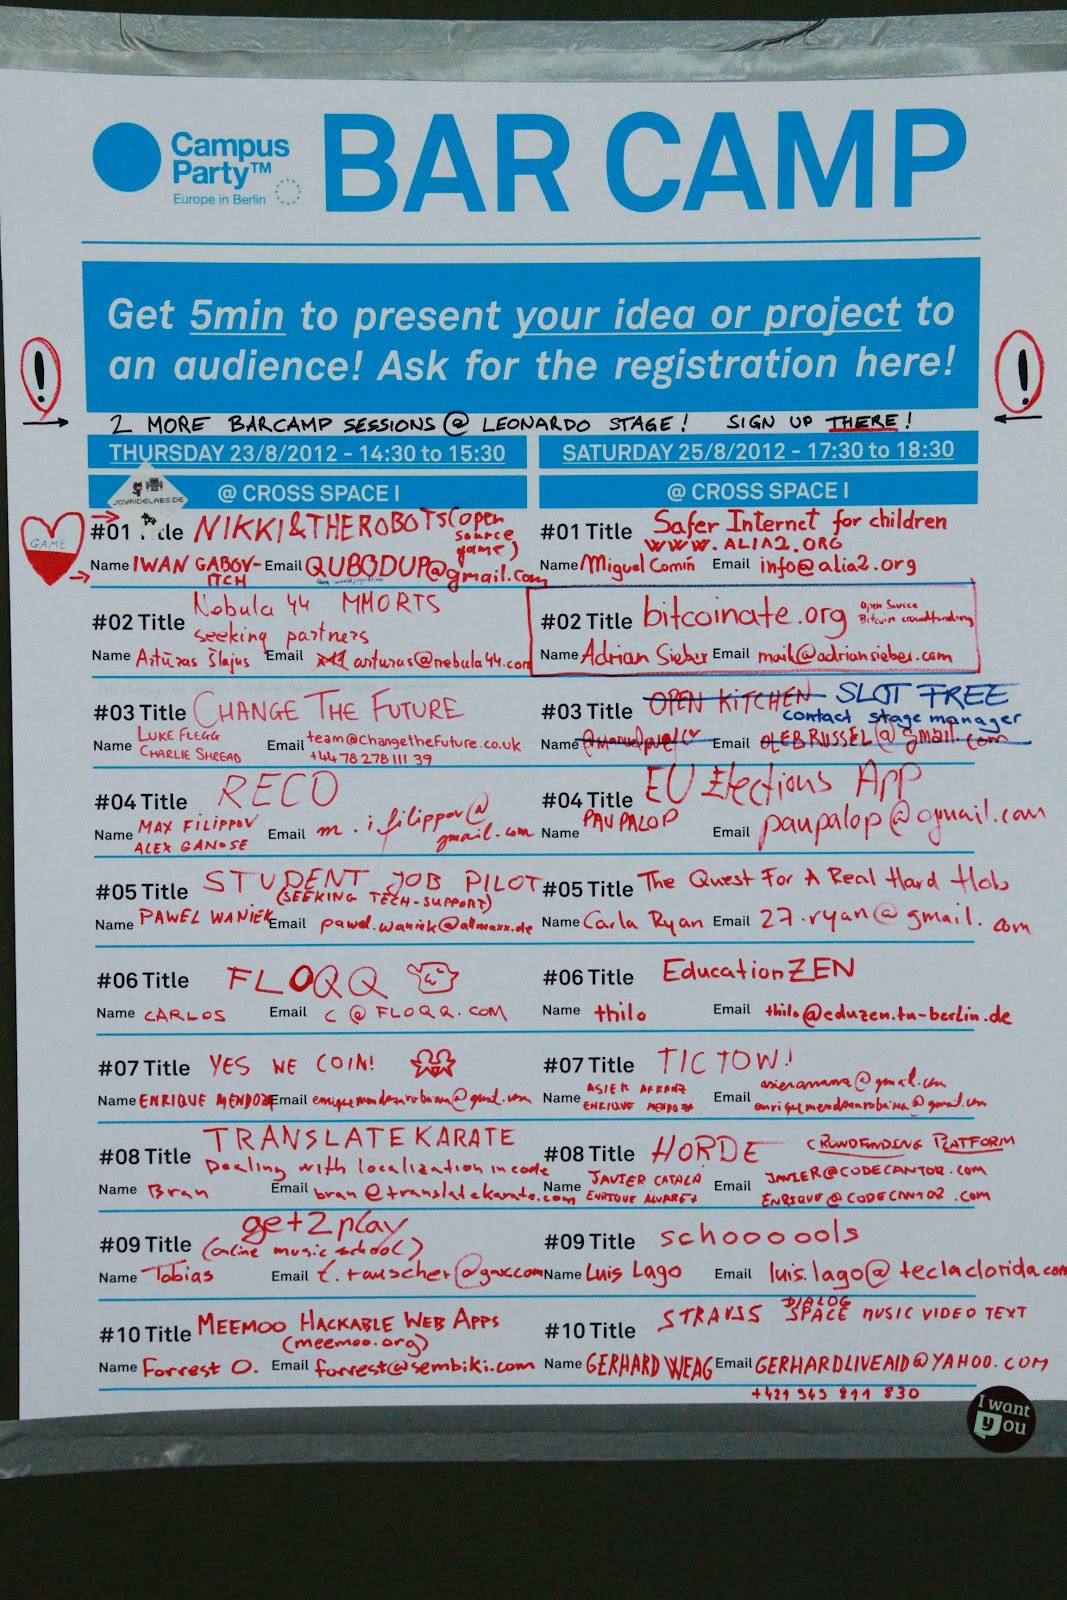 Campus
Party™
Europe in Berlin
BAR CAMP
Get 5min to present your idea or project to
an audience! Ask for the registration here!
!
!
2 MORE BARCAMP SESSIONS @ LEONARDO STAGE! SIGN UP THERE!
THURSDAY 23/8/2012 - 14:30 to 15:30
@ CROSS SPACE I
JOYRIDELABS.DE
GAME
#01 Title NIKKI & THE ROBOTS (open
source
game)
Name IWAN GABOV-
ITCH
Email QUBODUP@gmail.com
#02 Title Nebula 44 MMORTS
seeking partners
Name Artūras Šlajus Email arturas@nebula44.com
#03 Title CHANGE THE FUTURE
Name LUKE FLEGG
CHARLIE SHREAD
Email team@changetheFuture.co.uk
+44 78 278 111 39
#04 Title RECO
Name MAX FILIPPOV
ALEX GANOSE
Email m.i.filippov@
gmail.com
#05 Title STUDENT JOB PILOT
(SEEKING TECH-SUPPORT)
Name PAWEL WANIEK Email pawel.waniek@allmaxx.de
#06 Title FLOQQ
Name CARLOS Email C@FLOQQ.COM
#07 Title YES WE COIN!
Name ENRIQUE MENDOZA Email enriquemendozarobaina@gmail.com
#08 Title TRANSLATE KARATE
Dealing with localization in code
Name Bran Email bran@translatekarate.com
#09 Title get2play
(online music school)
Name Tobias Email t.rauscher@gmx.com
#10 Title MEEMOO HACKABLE WEB APPS
(meemoo.org)
Name Forrest O. Email forrest@sembiki.com
SATURDAY 25/8/2012 - 17:30 to 18:30
@ CROSS SPACE I
#01 Title Safer Internet for children
WWW.ALIA2.ORG
Name Miguel Comín Email info@alia2.org
#02 Title bitcoinate.org Open Source
Bitcoin crowdfunding
Name Adrian Sieber Email mail@adriansieber.com
#03 Title OPEN KITCHEN SLOT FREE
contact stage manager
Name Email OLEBRUSSEL@gmail.com
#04 Title EU Elections App
Name PAUPALOP Email paupalop@gmail.com
#05 Title The Quest For A Real Hard Hob
Name Carla Ryan Email 27.ryan@gmail.com
#06 Title EducationZEN
Name thilo Email thilo@eduzen.tu-berlin.de
#07 Title TICTOW!
Name ASIER ARRANZ
ENRIQUE MENDOZA
Email @gmail.com
enriquemendozarobaina@gmail.com
#08 Title HORDE CROWDFUNDING PLATFORM
Name JAVIER CATALÁ
ENRIQUE ALVAREZ
Email JAVIER@CODECANTOR.COM
ENRIQUE@CODECANTOR.COM
#09 Title schoooools
Name Luis Lago Email luis.lago@teclaclorida.com
#10 Title STRAUSS DIALOG
SPACE MUSIC VIDEO TEXT
Name GERHARD WEAG Email GERHARDLIVEAID@YAHOO.COM
+421 949 811 830
I want
you